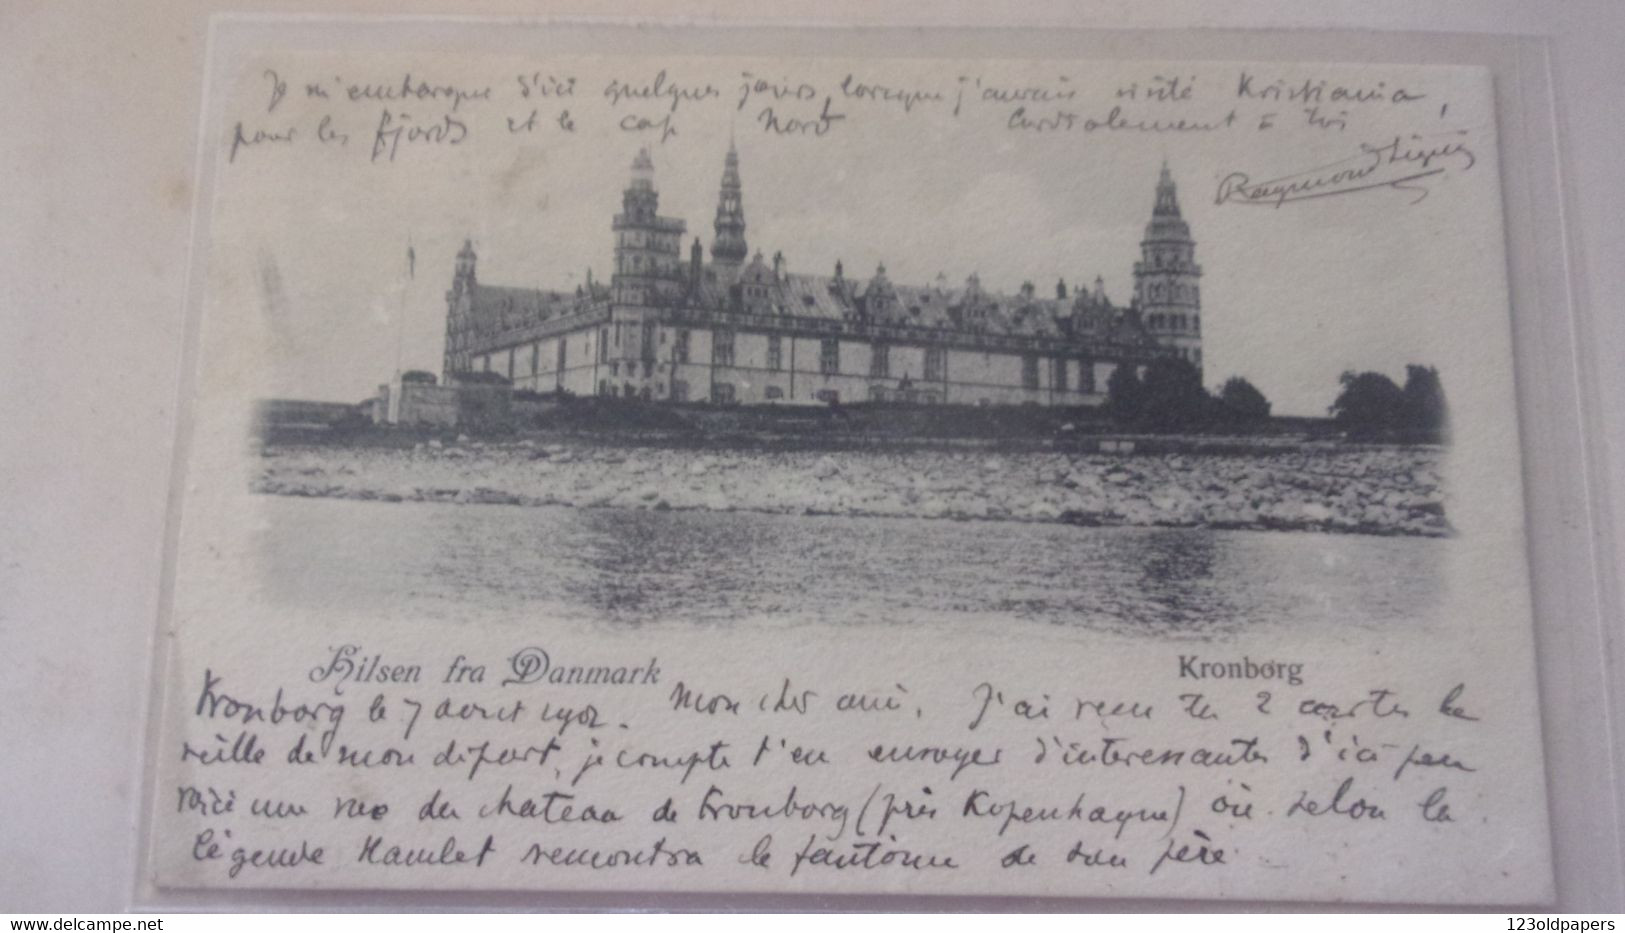 Je m'embarque d'ici quelques jours, lorsque j'aurais visité Kristiania,
pour les fjords et le cap Nord Cordialement à toi
Raymond
Hilsen fra Danmark
Kronborg
Kronborg le 7 aout 1902. Mon cher ami, J'ai recu tes 2 cartes la
veille de mon départ, je compte t'en envoyer d'interessantes d'ici peu
voici une vue du chateau de Kronborg (près Kopenhague) où selon la
légende Hamlet remontra le fantôme de son père
123oldpapers
delcampe.net